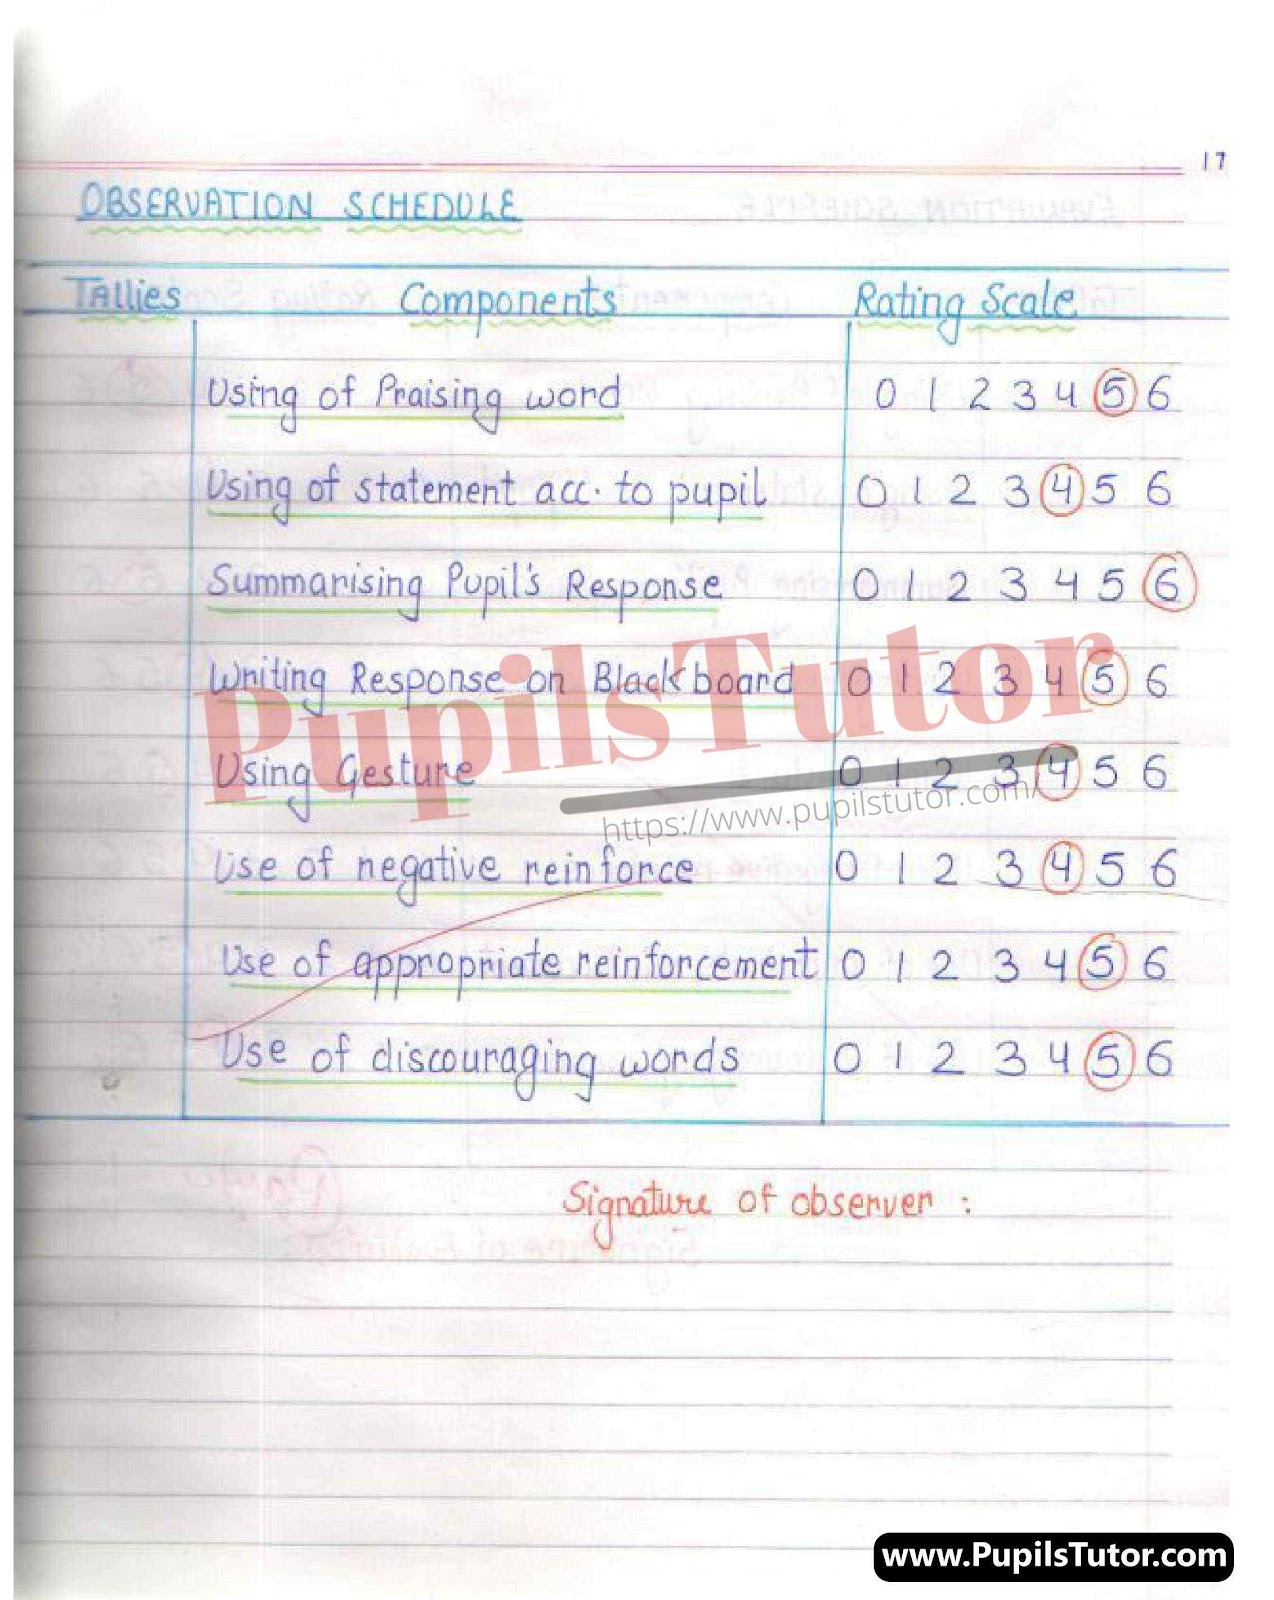 17
OBSERVATION SCHEDULE
Tallies Components Rating Scale
Using of Praising word 0 1 2 3 4 5 6
Using of statement acc. to pupil 0 1 2 3 4 5 6
Summarising Pupil's Response 0 1 2 3 4 5 6
Writing Response on Blackboard 0 1 2 3 4 5 6
PupilsTutor
Using Gesture 0 1 2 3 4 5 6
https://www.pupilstutor.com/
Use of negative reinforce 0 1 2 3 4 5 6
Use of appropriate reinforcement 0 1 2 3 4 5 6
Use of discouraging words 0 1 2 3 4 5 6
Signature of observer :
www.PupilsTutor.com